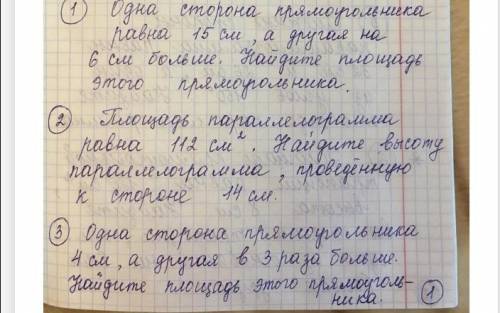 ① Одна сторона прямоугольника
равна 15 см, а другая на
6 см больше. Найдите площадь
этого прямоугольника.
② Площадь параллелограмма
равна 112 см². Найдите высоту
параллелограмма, проведённую
к стороне 14 см.
③ Одна сторона прямоугольника
4 см, а другая в 3 раза больше.
Найдите площадь этого прямоуголь-
ника. ①